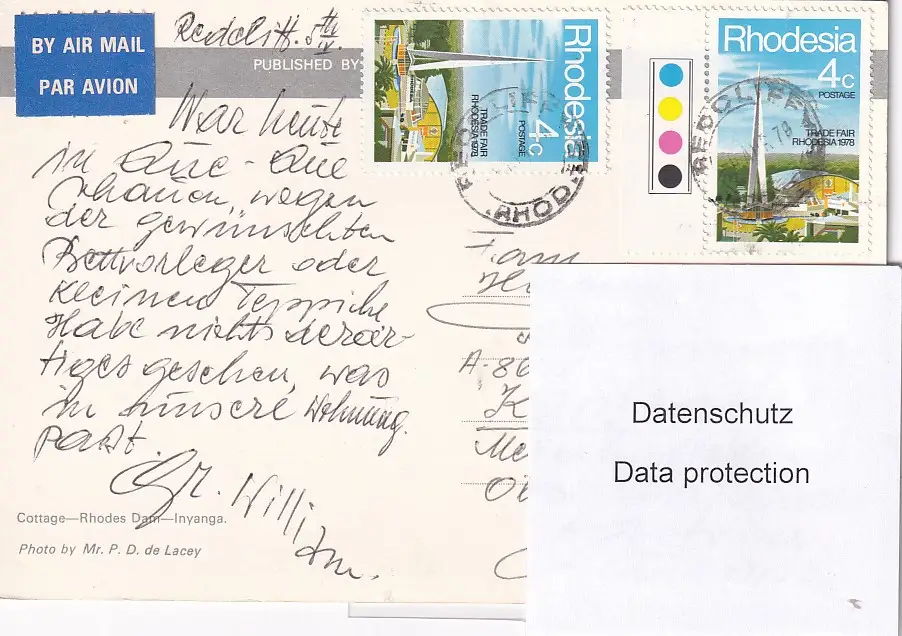 BY AIR MAIL
PAR AVION
Redcliff. 5th
IV.
PUBLISHED BY
Rhodesia
4c
POSTAGE
TRADE FAIR
RHODESIA 1978
REDCLIFF
RHOD
Rhodesia
4c
POSTAGE
TRADE FAIR
RHODESIA 1978
REDCLIFF
78
War heute
in Que-Que
schauen, wegen
der gewünschten
Bettvorleger oder
kleinen Teppiche
Habe nichts derar-
tiges gesehen, was
in unsere Wohnung
past.
Gr. Willi
Fam
A-86
K
Me
Cottage—Rhodes Dam—Inyanga.
Photo by Mr. P. D. de Lacey
Datenschutz
Data protection